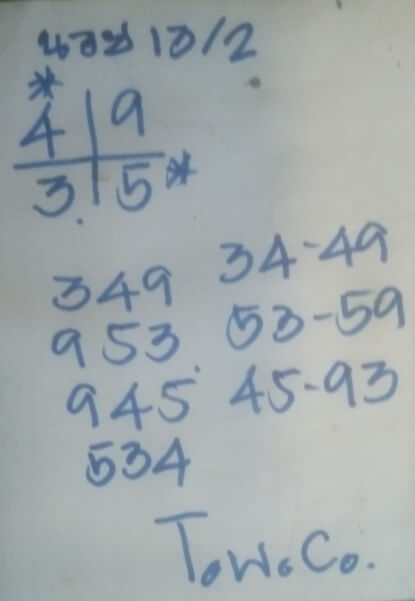 นอช 10/2
*
4 | 9
3. | 5 *
349 34-49
953. 53-59
945 45-93
534
T.W.Co.